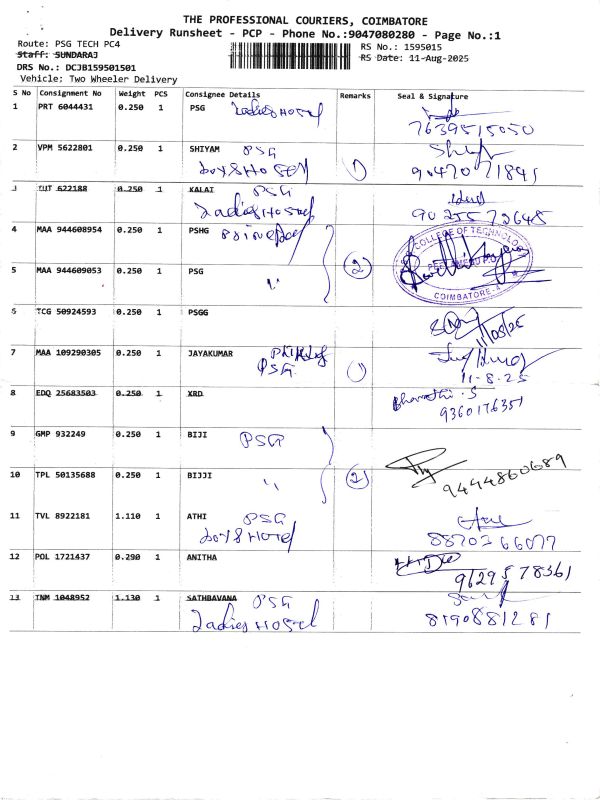 THE PROFESSIONAL COURIERS, COIMBATORE
Delivery Runsheet - PCP - Phone No.:9047080280 - Page No.:1
Route: PSG TECH PC4
RS No.: 1595015
Staff: SUNDARAJ
RS Date: 11-Aug-2025
DRS No.: DCJB159501501
Vehicle: Two Wheeler Delivery
S No Consignment No Weight PCS Consignee Details Remarks Seal & Signature
1 PRT 6044431 0.250 1 PSG Ladies Hostel
7639515050
2 VPM 5622801 0.250 1 SHIYAM PSG
boys Hostel 1 9047071841
3 TUT 622188 0.250 1 KALAI PSG
Ladies Hostel 9025572645
4 MAA 944608954 0.250 1 PSHG
COLLEGE OF TECHNOLOGY
2
5 MAA 944609053 0.250 1 PSG "
COIMBATORE-4
6 TCG 50924593 0.250 1 PSGG
11/08/25
7 MAA 109290305 0.250 1 JAYAKUMAR
PSG 1 11-8-25
8 EDQ 25683503 0.250 1 XRD Bharathi. S
9360176351
9 GMP 932249 0.250 1 BIJI PSG
10 TPL 50135688 0.250 1 BIJJI " 2 9444860689
11 TVL 8922181 1.110 1 ATHI PSG
boys Hostel 8870366077
12 POL 1721437 0.290 1 ANITHA
9629578361
13 TNM 1048952 1.130 1 SATHBAVANA PSG
Ladies Hostel 8190881281